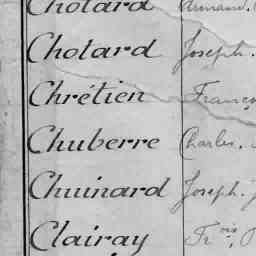 Chotard Armand.
Chotard Joseph.
Chrétien Franço
Chuberre Charles.
Chuinard Joseph.
Clairay Fr.ois